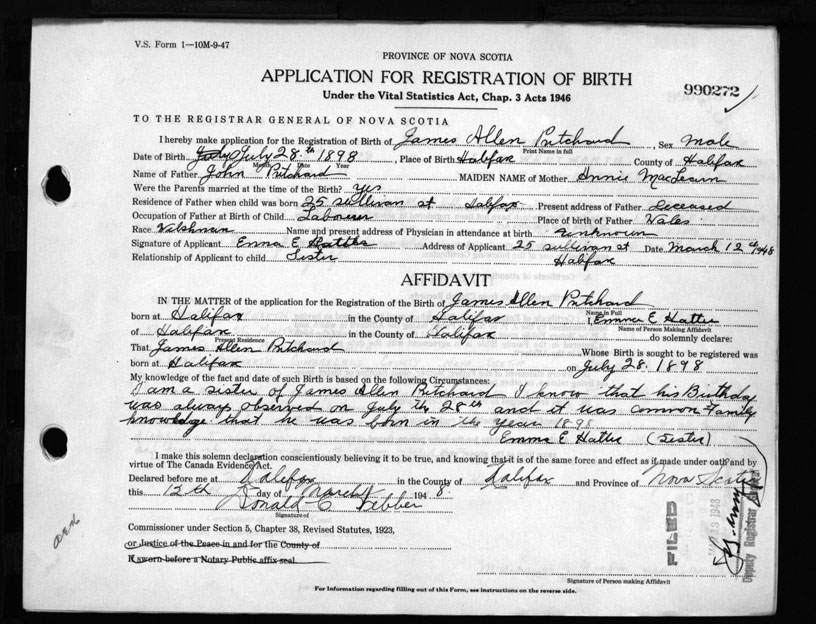 V.S. Form 1—10M-9-47
PROVINCE OF NOVA SCOTIA
APPLICATION FOR REGISTRATION OF BIRTH
990272
Under the Vital Statistics Act, Chap. 3 Acts 1946
TO THE REGISTRAR GENERAL OF NOVA SCOTIA
I hereby make application for the Registration of Birth of James Allen Pritchard, Sex Male
Print Name in full
Date of Birth July July 28th 1898, Place of Birth Halifax County of Halifax
Month Date Year
Name of Father John Pritchard MAIDEN NAME of Mother Annie MacLearn
Were the Parents married at the time of the Birth? yes
Residence of Father when child was born 25 Sullivan St Halifax Present address of Father Deceased
Occupation of Father at Birth of Child Labourer Place of birth of Father Wales
Race Welshman Name and present address of Physician in attendance at birth Unknown
Signature of Applicant Emma E Hattie Address of Applicant 25 Sullivan St Date March 12th 1948
Relationship of Applicant to child Sister Halifax
AFFIDAVIT
IN THE MATTER of the application for the Registration of the Birth of James Allen Pritchard
Name in Full
born at Halifax in the County of Halifax I, Emma E Hattie
Name of Person Making Affidavit
of Halifax in the County of Halifax do solemnly declare:
Present Residence
That James Allen Pritchard Whose Birth is sought to be registered was
born at Halifax on July 28. 1898
My knowledge of the fact and date of such Birth is based on the following Circumstances:
I am a sister of James Allen Pritchard I know that his Birthday
was always observed on July the 28th and it was common Family
knowledge that he was born in the year 1898
Emma E Hattie (Sister)
I make this solemn declaration conscientiously believing it to be true, and knowing that it is of the same force and effect as if made under oath and by
virtue of The Canada Evidence Act.
Declared before me at Halifax in the County of Halifax and Province of Nova Scotia
this 12th day of March 1948.
Donald C Webber
Signature of
Commissioner under Section 5, Chapter 38, Revised Statutes, 1923,
or Justice of the Peace in and for the County of
If sworn before a Notary Public affix seal
FILED
MAR 13 1948
Deputy Registrar
Signature of Person making Affidavit
For Information regarding filling out of this Form, see instructions on the reverse side.